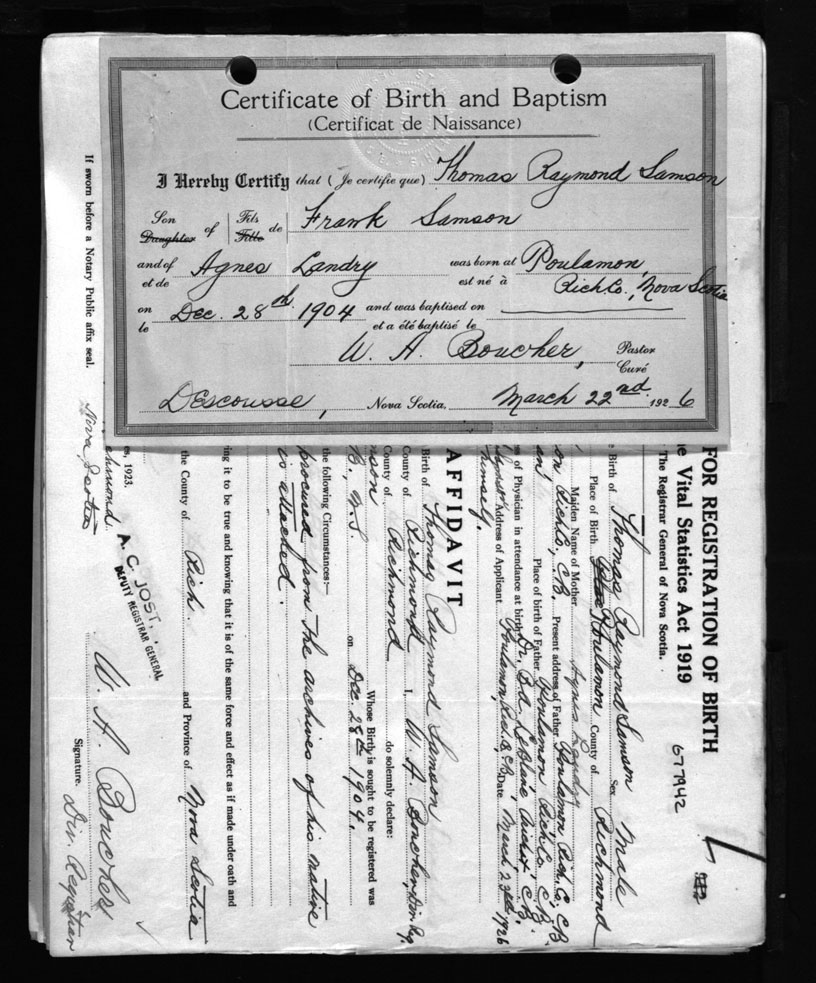 Certificate of Birth and Baptism
(Certificat de Naissance)
I Hereby Certify that (Je certifie que) Thomas Raymond Samson
Son Daughter of Fils Fille de Frank Samson
and of et de Agnes Landry was born at est né à Poulamon,
Rich Co., Nova Scotia
on le Dec. 28th. 1904 and was baptised on et a été baptisé le
W. A. Boucher, Pastor Curé
DEscousse, Nova Scotia, March 22nd. 1926
FOR REGISTRATION OF BIRTH
e Vital Statistics Act 1919
The Registrar General of Nova Scotia.
677942
e Birth of Thomas Raymond Samson Sex Male
Place of Birth Poulamon County of Richmond
Maiden Name of Mother Agnes
on Rich Co., C.B. Present address of Father Poulamon Rich. Co., C.B.
Place of birth of Father Poulamon Rich Co., C.B.
ss of Physician in attendance at birth Dr. LeBlanc Arichat, C.B.
Address of Applicant Poulamon, C.B. Date March 23rd 1926
himself.
AFFIDAVIT
Birth of Thomas Raymond Samson
County of Richmond I, W. A. Boucher, Div. Reg.
County of Richmond do solemnly declare:
Whose Birth is sought to be registered was
B., N.S. on Dec. 28th 1904.
the following Circumstances:—
procured from the archives of his native
is attached.
ing it to be true and knowing that it is of the same force and effect as if made under oath and
the County of Rich. and Province of Nova Scotia
A. C. JOST,
DEPUTY REGISTRAR GENERAL
W. A. Boucher
Signature. Div. Registrar
es, 1923.
chmond
Nova Scotia
If sworn before a Notary Public affix seal.